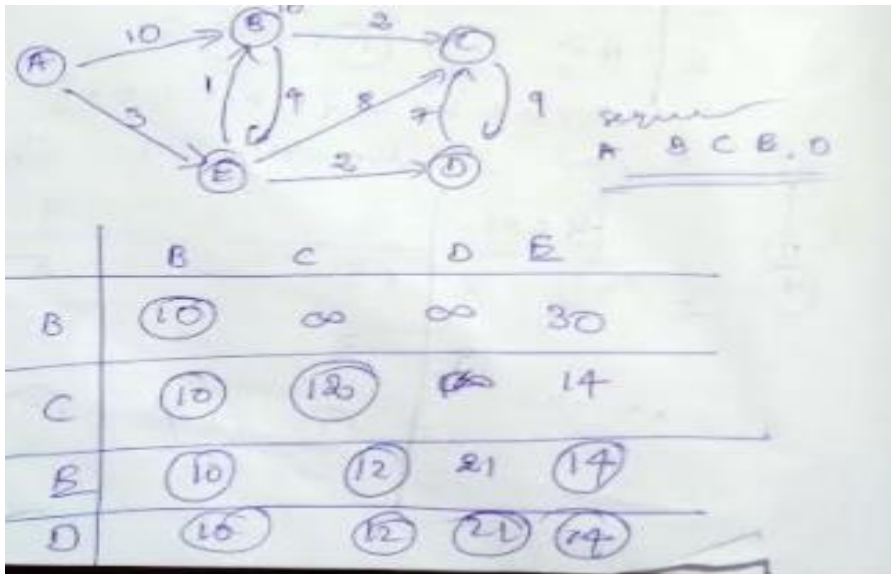 10
A 10 B 2 C
3 1 4 8 7 9
E 2 D
A B C E, D
B C D E
B 10 ∞ ∞ 30
C 10 12 ∞ 14
E 10 12 21 14
D 10 12 21 14